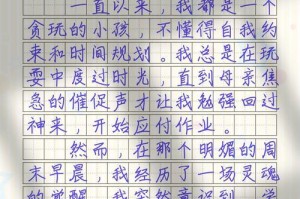 一直以来，我都是一个
贪玩的小孩，不懂得自我约
束和时间规划。我总是在玩
耍中度过时光，直到母亲焦
急的催促声才让我勉强回过
神来，开始应付作业。
然而，在那个明媚的周
末早晨，我经历了一场灵魂
的觉醒。我突然意识到，学